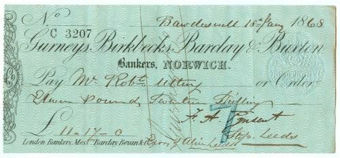 No
C 3207
Bawdeswell 18 Jany 1868
Gurneys, Birkbecks, Barclay & Buxton
Bankers, NORWICH.
Pay Mr Robt Utting or Order
Eleven Pounds Seventeen Shillings
£ 11-17-0
London Bankers, Messrs Barclay, Bevan &